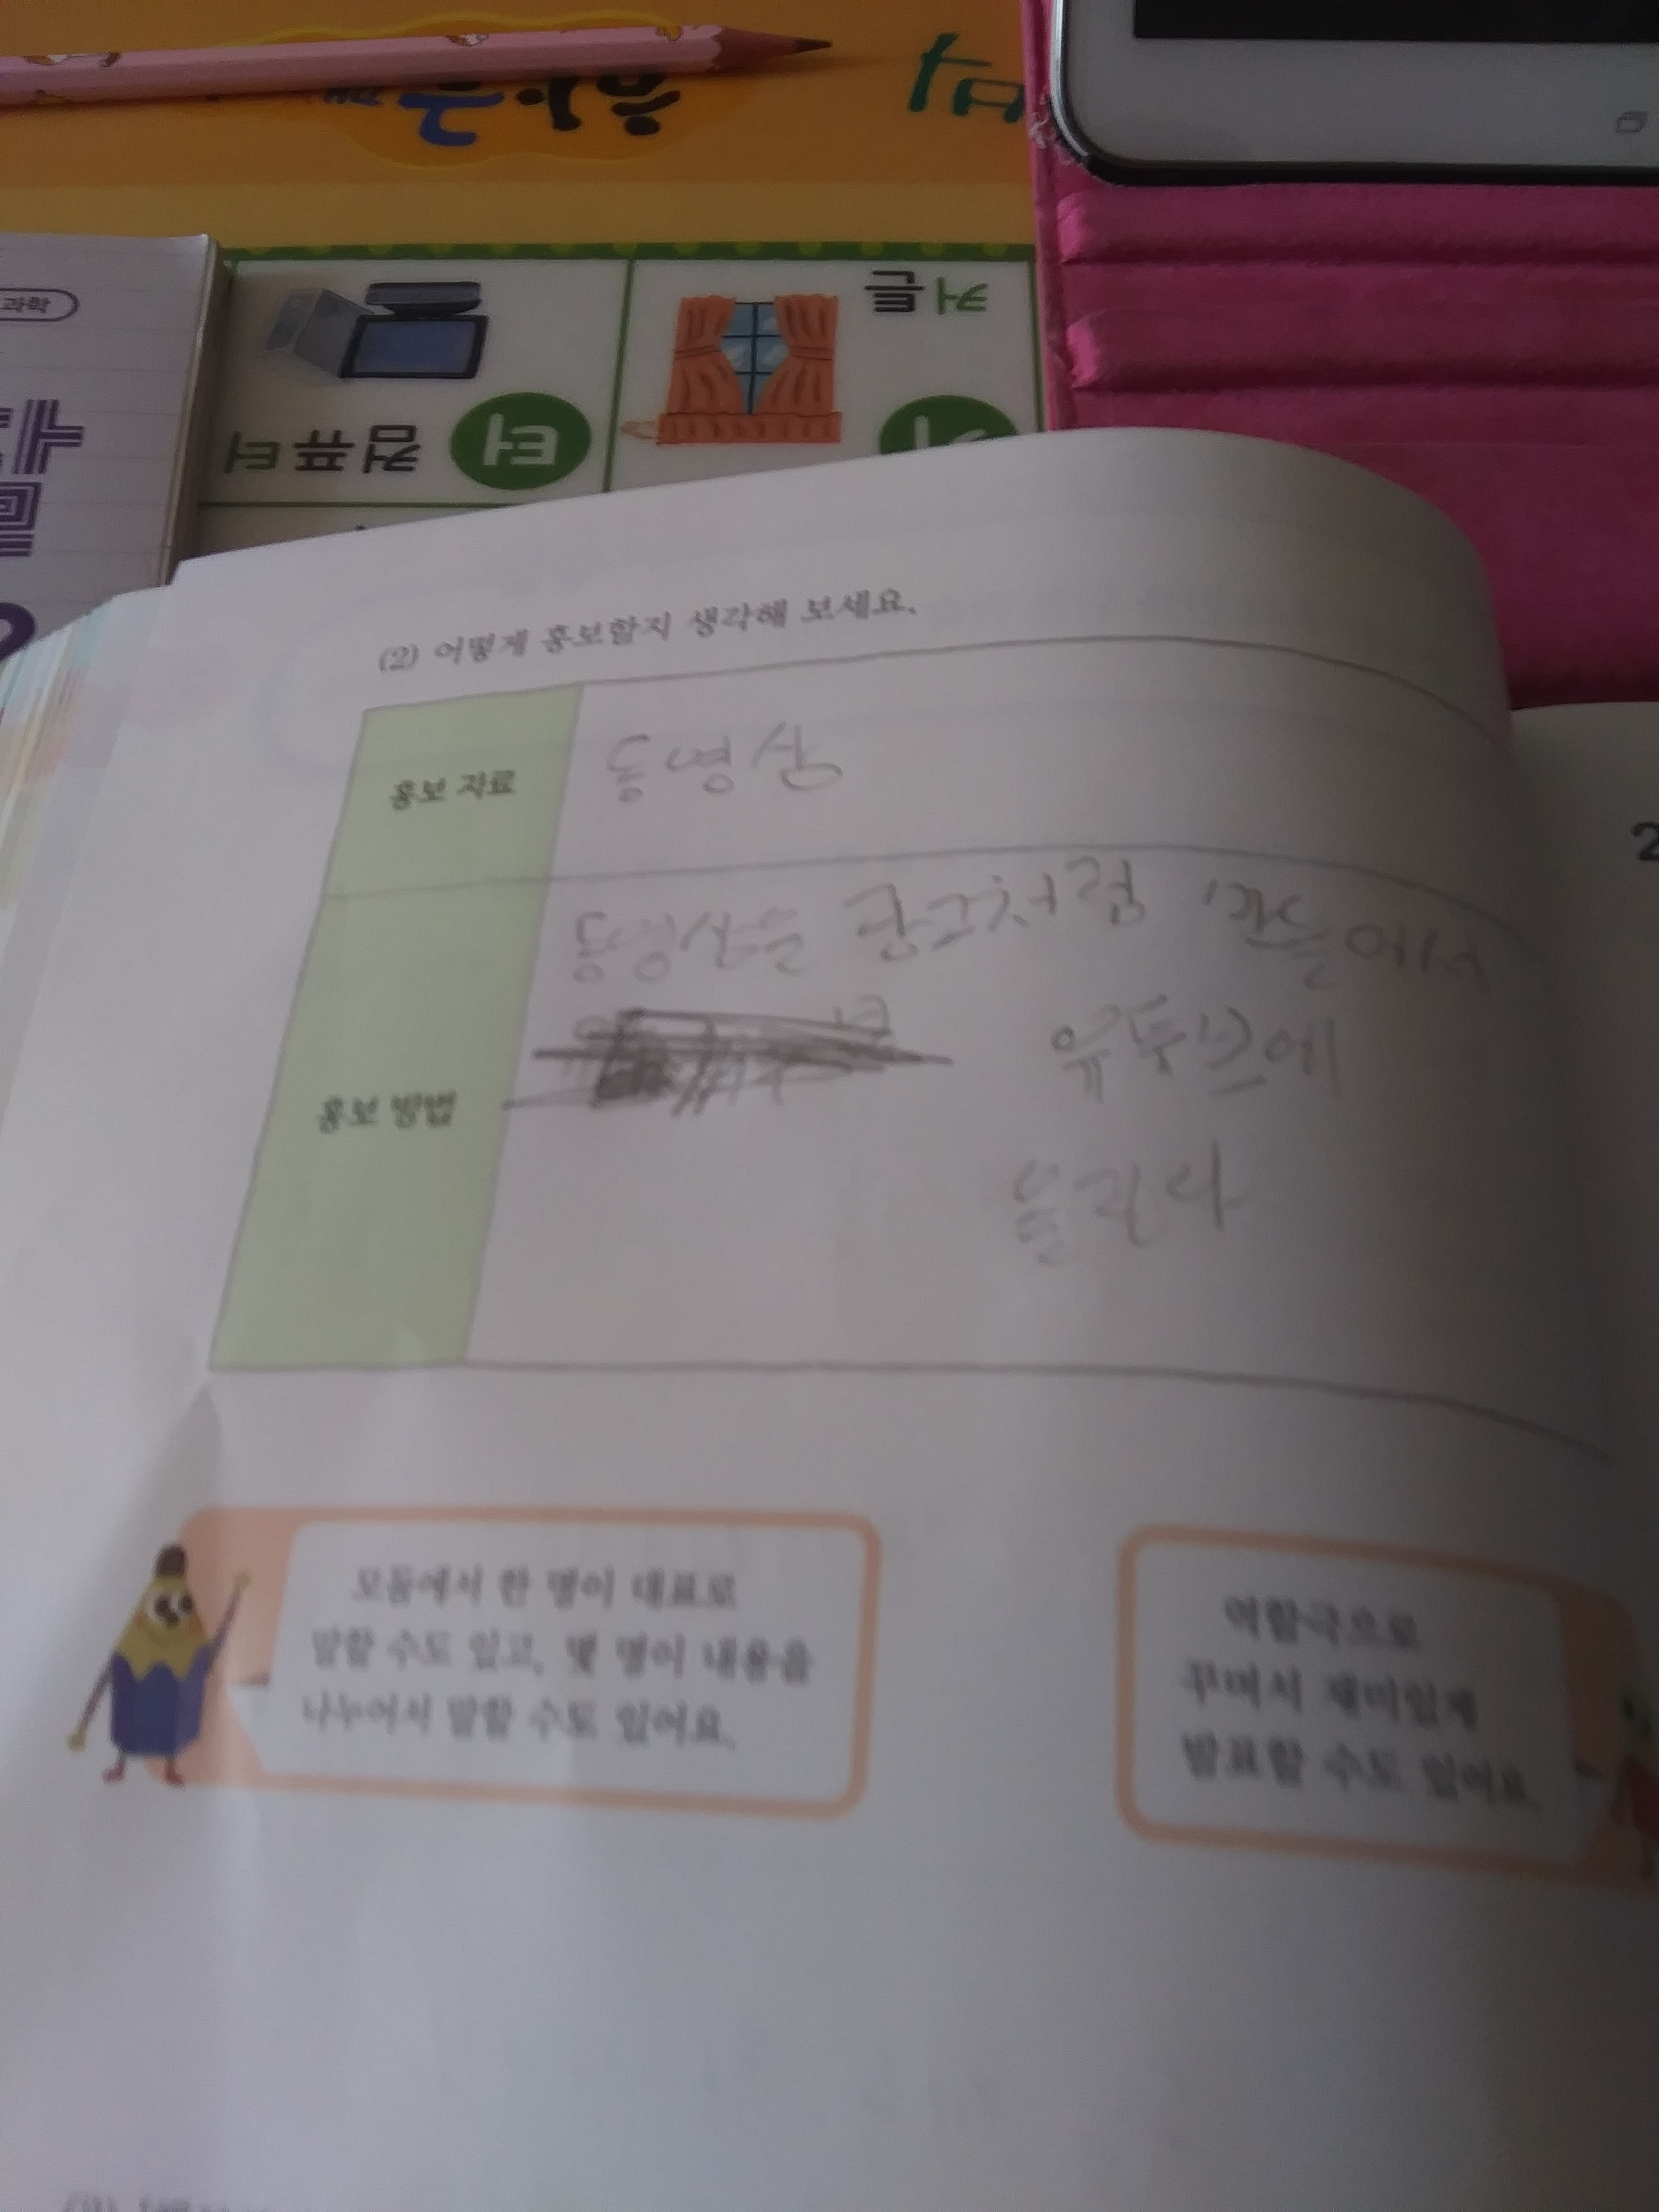 커튼
컴퓨터
터
과학
(2) 어떻게 홍보할지 생각해 보세요.
홍보 자료
동영상
홍보 방법
동영상을 광고처럼 만들어서
유튜브에
올린다
모둠에서 한 명이 대표로
말할 수도 있고, 몇 명이 내용을
나누어서 말할 수도 있어요.
역할극으로
꾸며서 재미있게
발표할 수도 있어요.
2